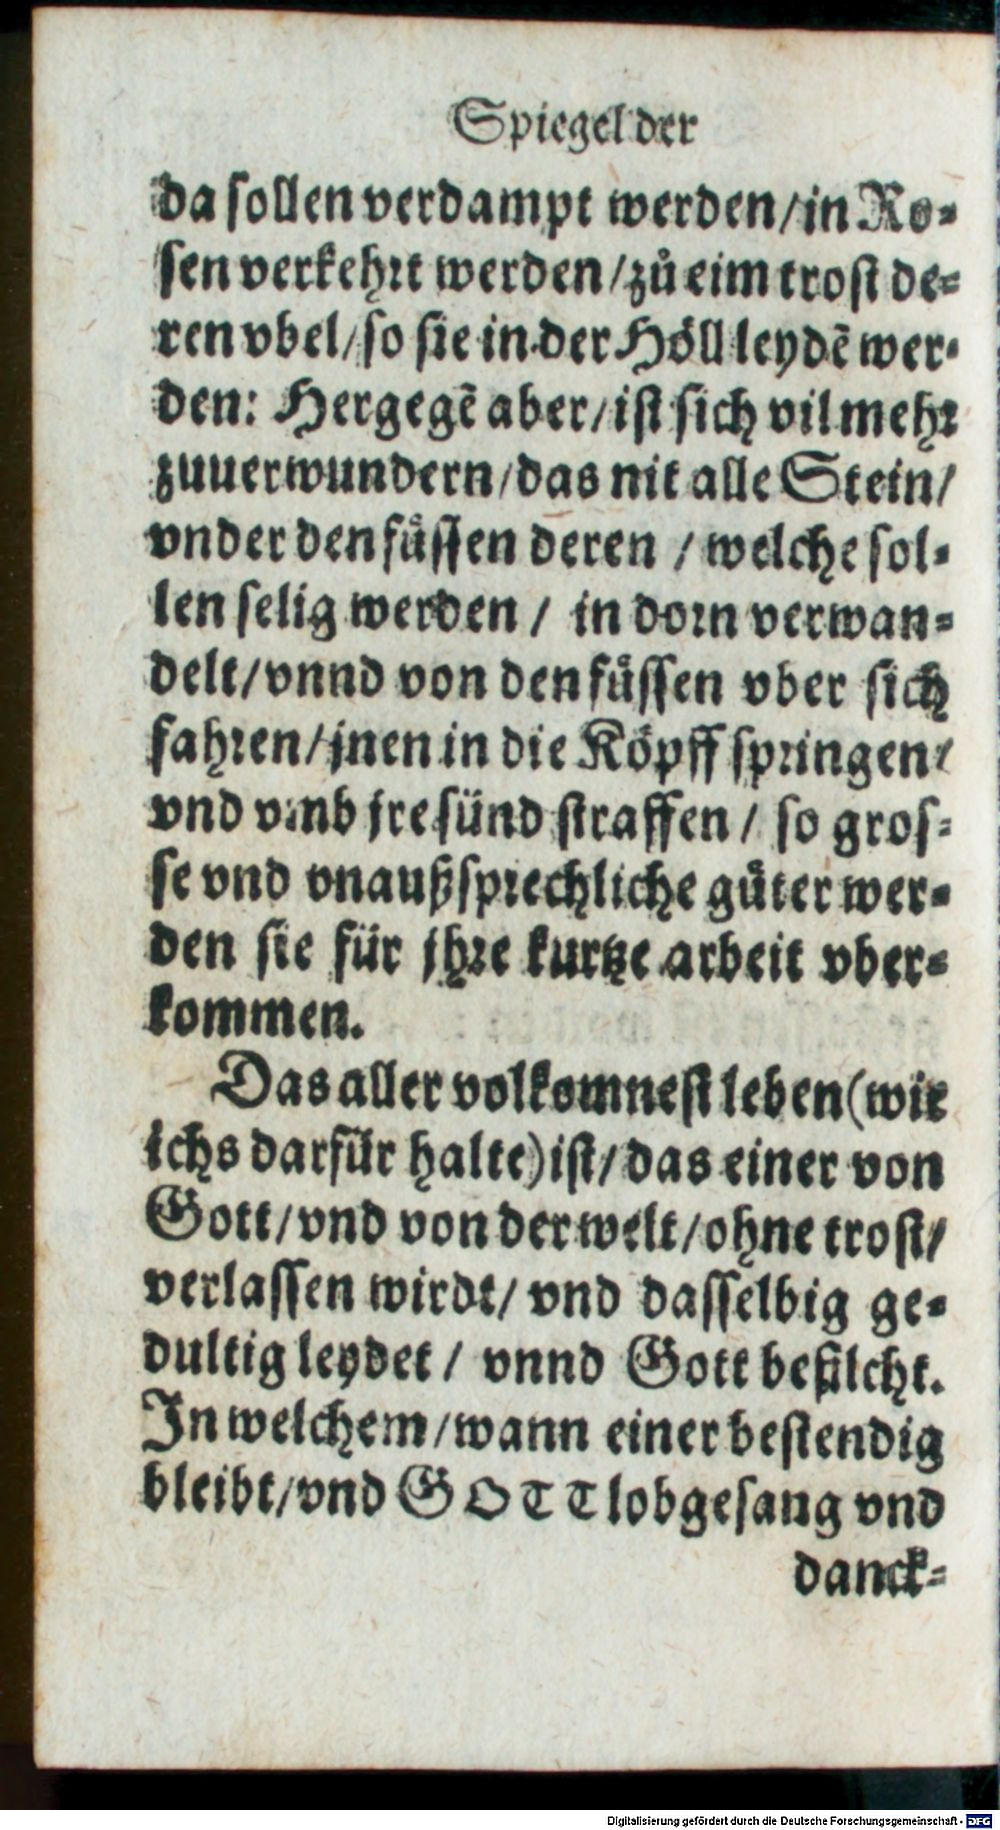 Spiegel der
da sollen verdampt werden/in Ro-
sen verkehrt werden/zů eim trost de-
ren vbel/so sie in der Höll leydẽ wer-
den: Hergegẽ aber/ist sich vil mehr
zuuerwundern/das nit alle Stein/
vnder den fůssen deren / welche sol-
len selig werden / in dorn verwan-
delt/vnnd von den fůssen vber sich
fahren/jnen in die Köpff springen/
vnd vmb jre sünd straffen / so gros-
se vnd vnaußsprechliche gůter wer-
den sie für jhre kurtze arbeit vber-
kommen.
Das aller volkomnest leben(wie
ichs darfür halte)ist/das einer von
Gott/vnd von der welt/ohne trost/
verlassen wirdt/ vnd dasselbig ge-
dultig leydet / vnnd Gott befilcht.
In welchem/wann einer bestendig
bleibt/vnd GOTT lobgesang vnd
danck-
Digitalisierung gefördert durch die Deutsche Forschungsgemeinschaft - DFG